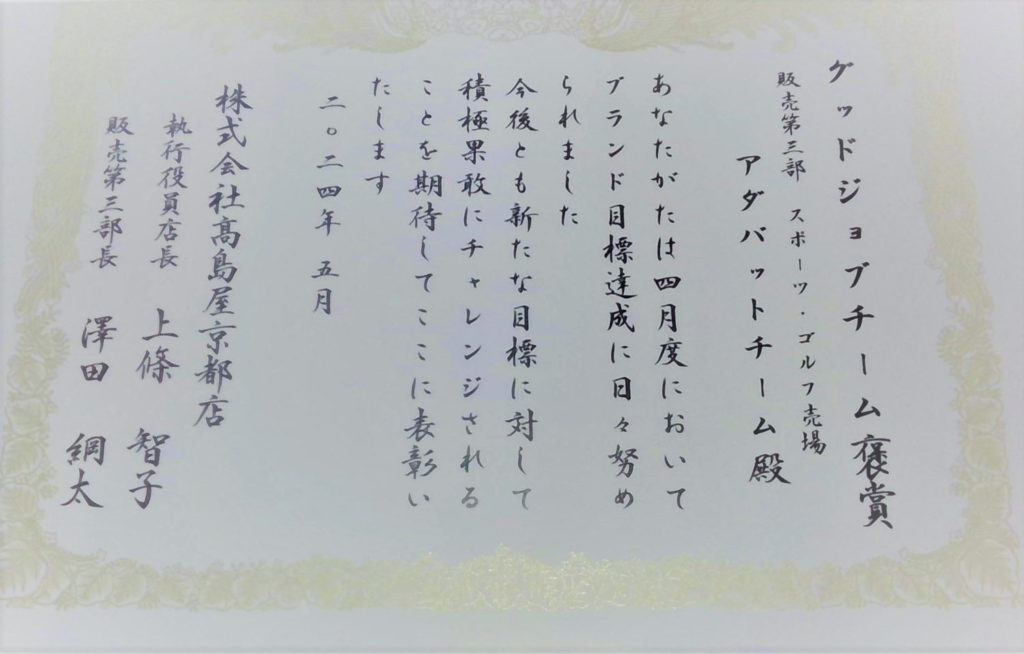 グッドジョブチーム褒賞
販売第三部 スポーツ・ゴルフ売場
アダバットチーム殿
あなたがたは四月度において
ブランド目標達成に日々努め
られました
今後とも新たな目標に対して
積極果敢にチャレンジされる
ことを期待してここに表彰い
たします
二〇二四年 五月
株式会社髙島屋京都店
執行役員店長 上條 智子
販売第三部長 澤田 綱太